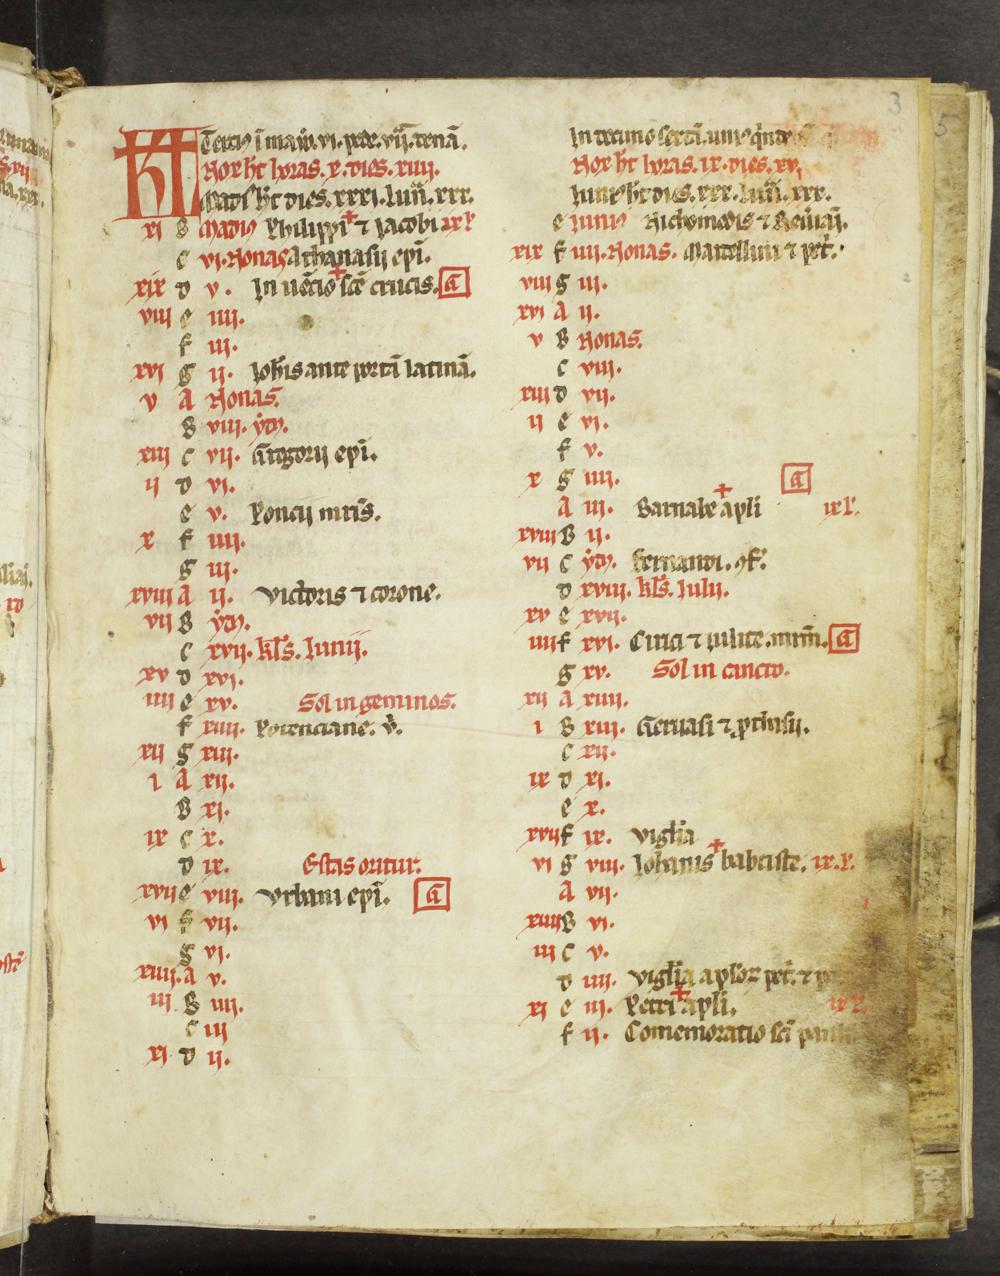 3
KL Terci9 ĩ maio. vi. pede. vij. tenã.
Nox hĩt horas. x. dies. xiiij.
Madi9 hĩt dies. xxxi. lun̄. xxx.
xi B Madi9 Philippi ✝ ⁊ Jacobi ix l'
c vi. Nonas Athanasii epĩ.
xix d v. In uẽcio scẽ crucis. ✝ a
viii e iiij.
f iij.
xvi g ij. Joħis ante portã latinã.
v A Nonas.
B viij. yđ.
xiii c vij. Gregorii epĩ.
ii d vi.
e v. Poncij mrĩs.
x f iiij.
g iij.
xviii A ij. Victoris ⁊ corone.
vii B yđ.
c xvij. kl̄s. Junij.
xv d xvj.
iiii e xv. Sol in geminos.
f xiiij. Potenciane. v̄.
xii g xiij.
i A xij.
B xj.
ix c x.
d ix. Estas oritur.
xvii e viij. Urbani epĩ. a
vi f vij.
g vj.
xiiij. A v.
iii B iiij.
c iij
xi d ij.
In decimo
Nox hĩt horas. ix. dies. xv.
Juni9 hĩt dies. xxx. lun̄. xxx.
e Juni9 Nichomedis ⁊
xix f iiij. Nonas. Marcellini ⁊ pet̄.
viii g iij.
xvi A ij.
v B Nonas.
c viij.
xiii d vij.
ii e vi.
f v.
x g iiij. a
A iij. Barnabe ✝ apl̄i ix l'.
xviii B ij.
vii c yđ. Bernardi. ꝯf.
d xviij. kl̄s. Julii.
xv e xvij.
iiii f xvi. Cirici ⁊ iulite. mr̄m. a
g xv. Sol in cancro.
xii A xiiij.
i B xiij. Geruasi ⁊ ꝓthasij.
c xij.
ix d xj.
e x.
xvii f ix. Vigl̄ia
vi g viij. Joħanis ✝ babtiste. ix. l'.
A vij.
xiiii B vi.
iii c v.
d iiij. Vigl̄ia apl̄oꝝ pet̄. ⁊ p
xi e iij. Petri ✝ apl̄i. ix l'.
f ij. Comemoratio scĩ pauli